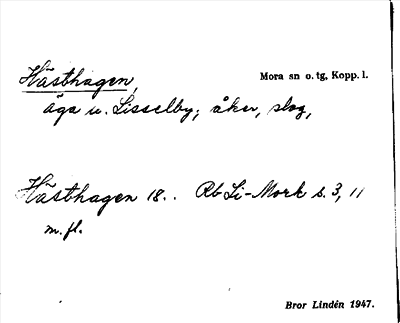 Hästhagen,
Mora sn o. tg, Kopp. l.
äga u. Lisselby; åker, slog,
Hästhagen 18.. Rb Li-Mork s. 3, 11
m. fl.
Bror Lindén 1947.